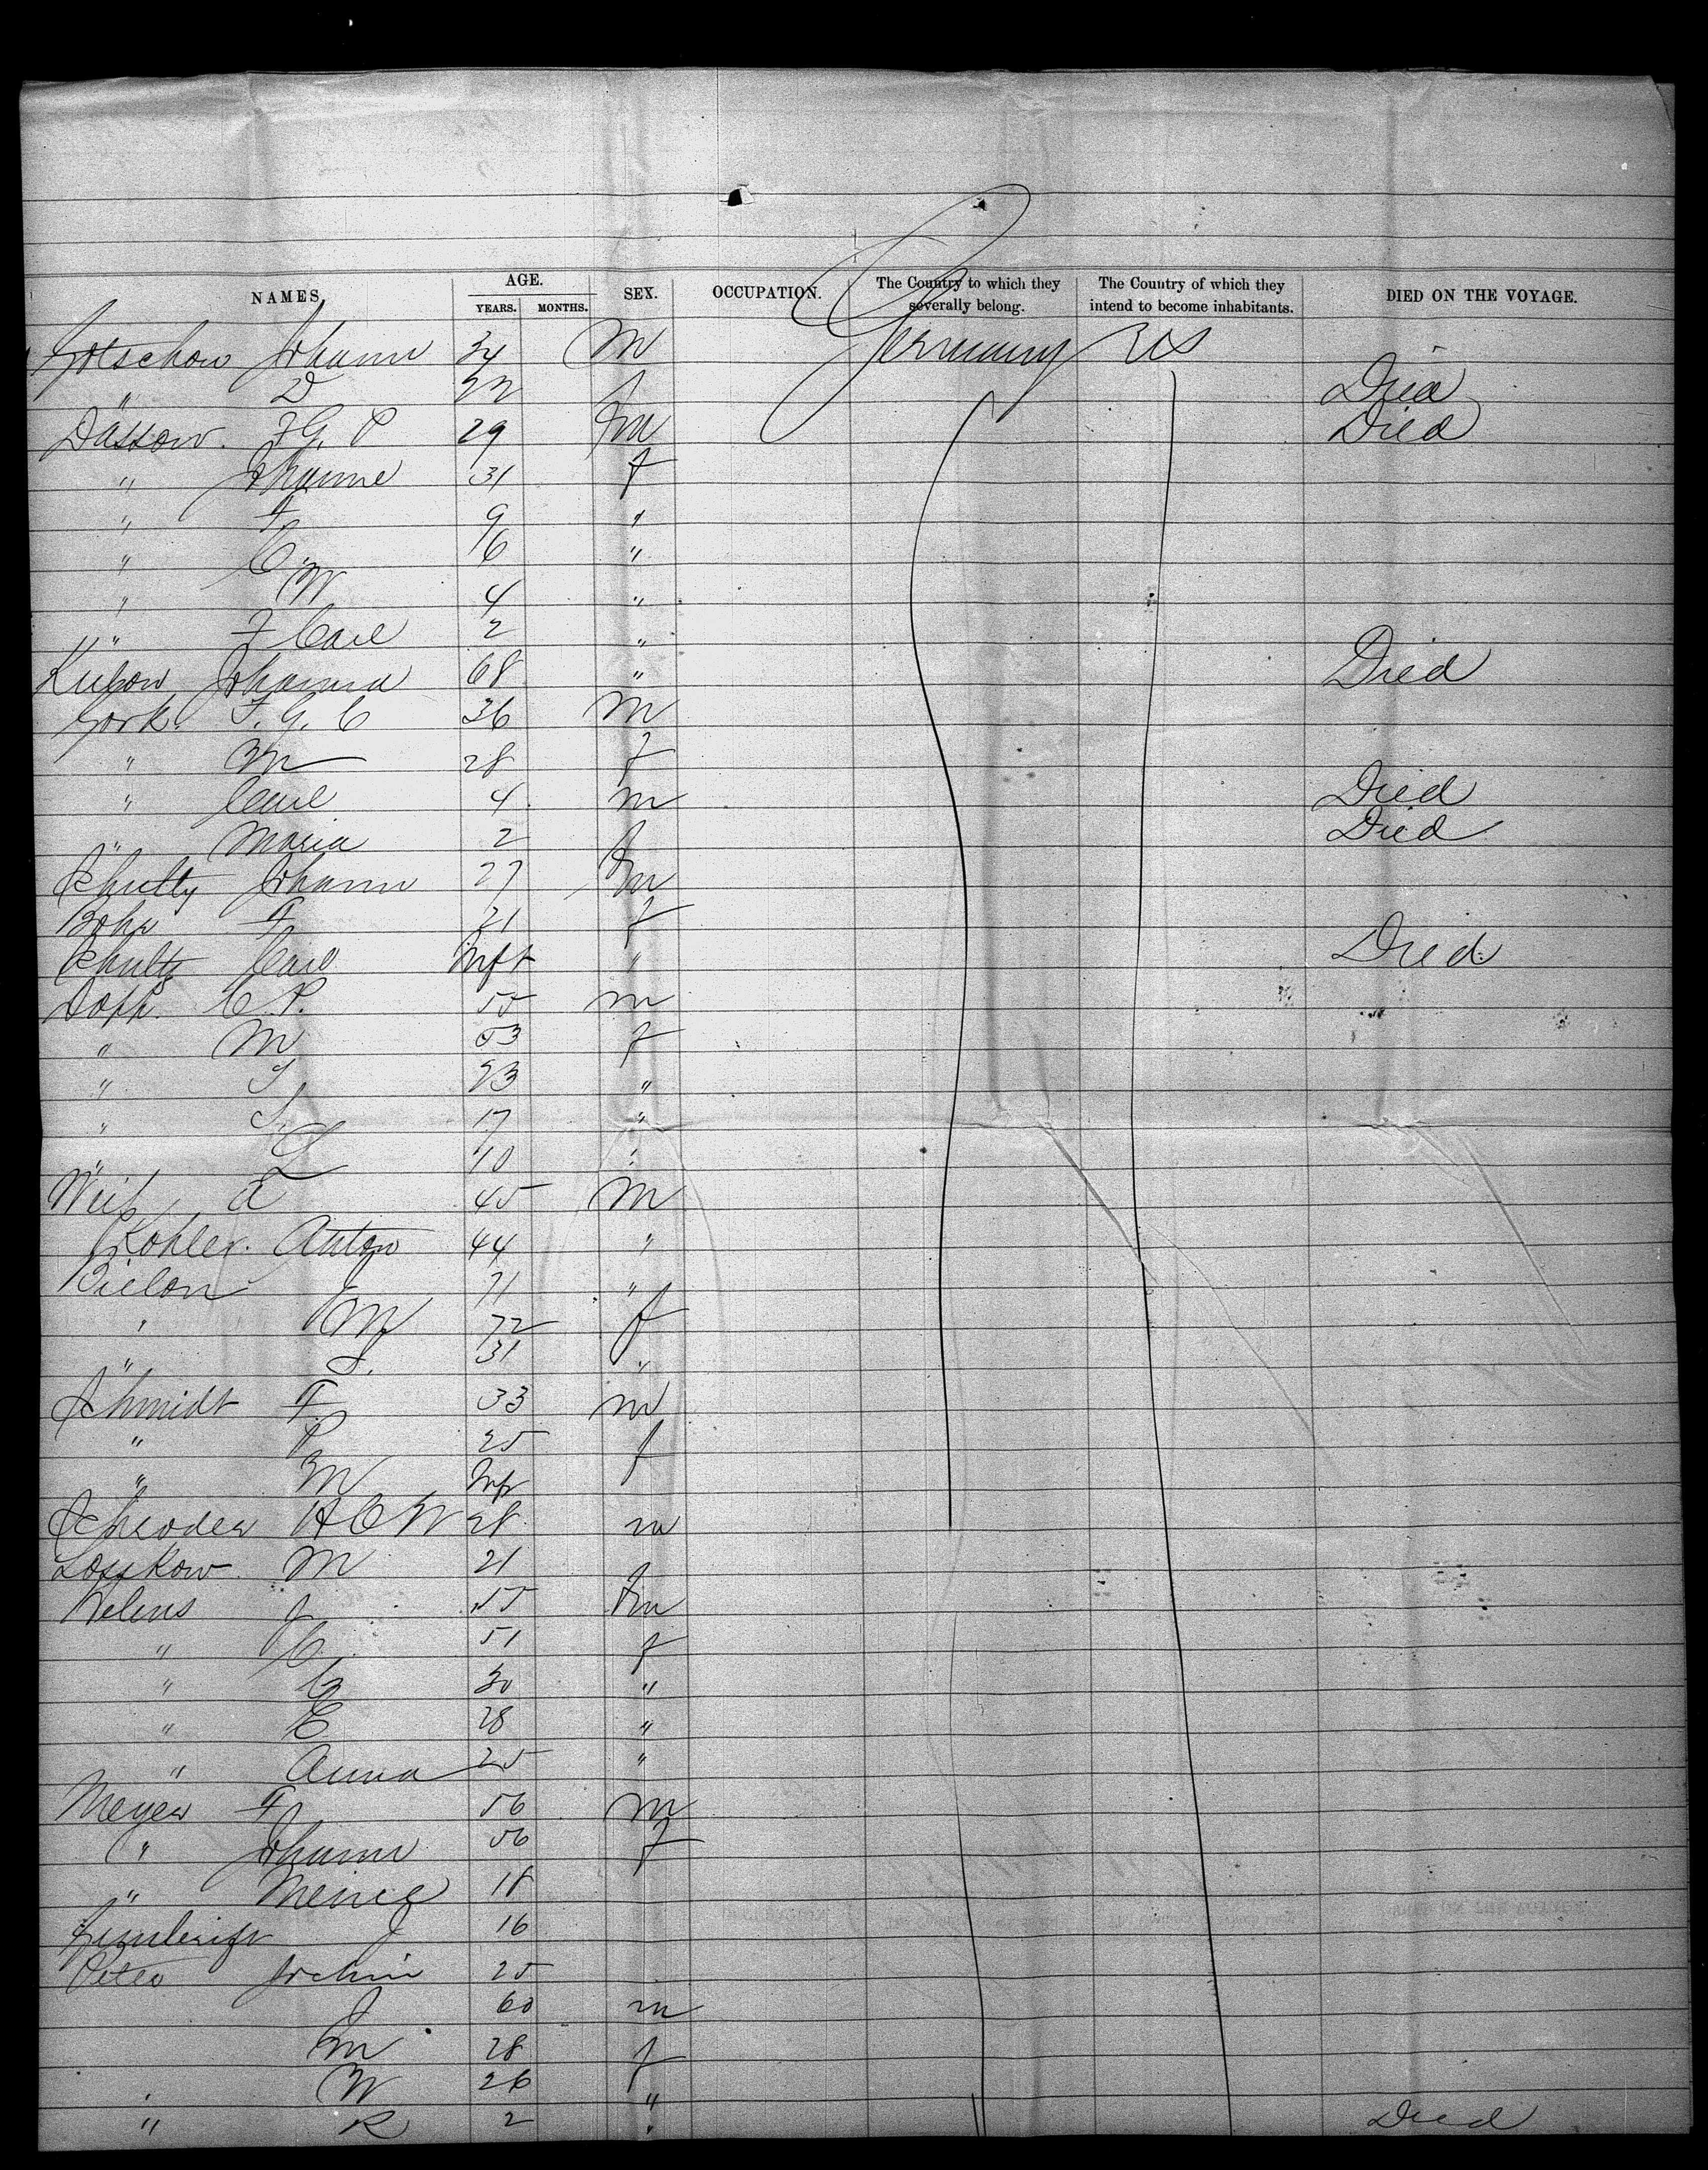 NAMES. AGE. SEX. OCCUPATION. The Country to which they severally belong. The Country of which they intend to become inhabitants. DIED ON THE VOYAGE.
YEARS. MONTHS.
Gotschow Johann 34 M Germany US
" D 32 f Died
Dassow. F G. P 29 m Died
" Johanne 31 f
" F 9 "
" C. 6 "
" W 4 "
" F Carl 2 "
Kubow Johanna 68 " Died
York. F. G. C 36 M
" M 28 f
" Carl 4 m Died
" Maria 2 f Died
Schultz Johann 27 m
Bohr F 21 f
Schultz Carl Inft " Died
Dopp. C. P. 55 m
" M 53 f
" S 23 "
" S. 17 "
" L 10 "
Weis A 45 M
Kohler. Anton 44 "
Bielon 71 "
" M 72 f
" S. 31 "
Schmidt F 33 m
" P 25 f
" M Inf
Schroder H C W 28 m
Losskow M 21 f
Helms J 55 m
" C. 51 f
" C 30 "
" E 28 "
" Anna 25 "
Meyer F 56 m
" Johann 56 f
" 18
J 16
Peter Jochim 25
J 60 m
M 28 f
" W 26 "
" R 2 " Died